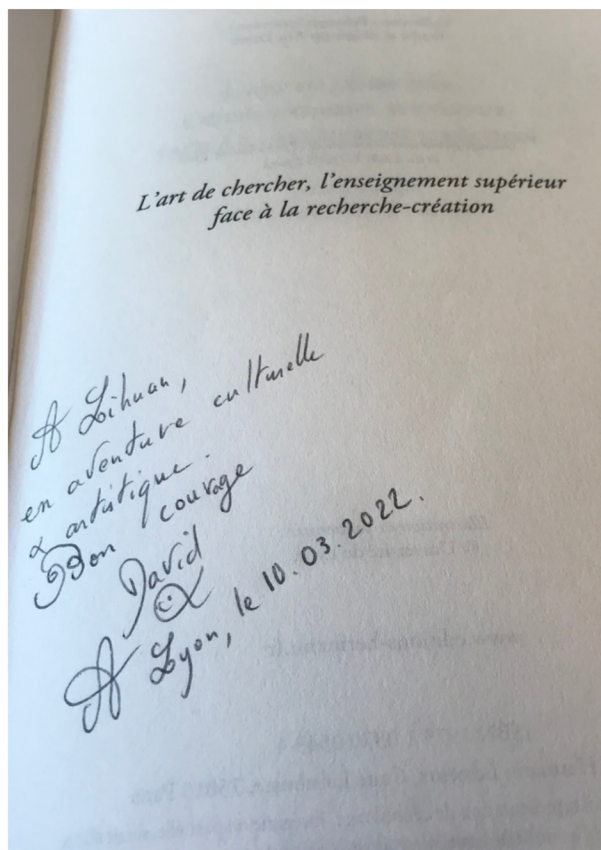 L'art de chercher, l'enseignement supérieur
face à la recherche-création
A Lihuan,
en aventure culturelle
& artistique.
Bon courage
David
A Lyon, le 10.03.2022.
www.editions-hermann.fr